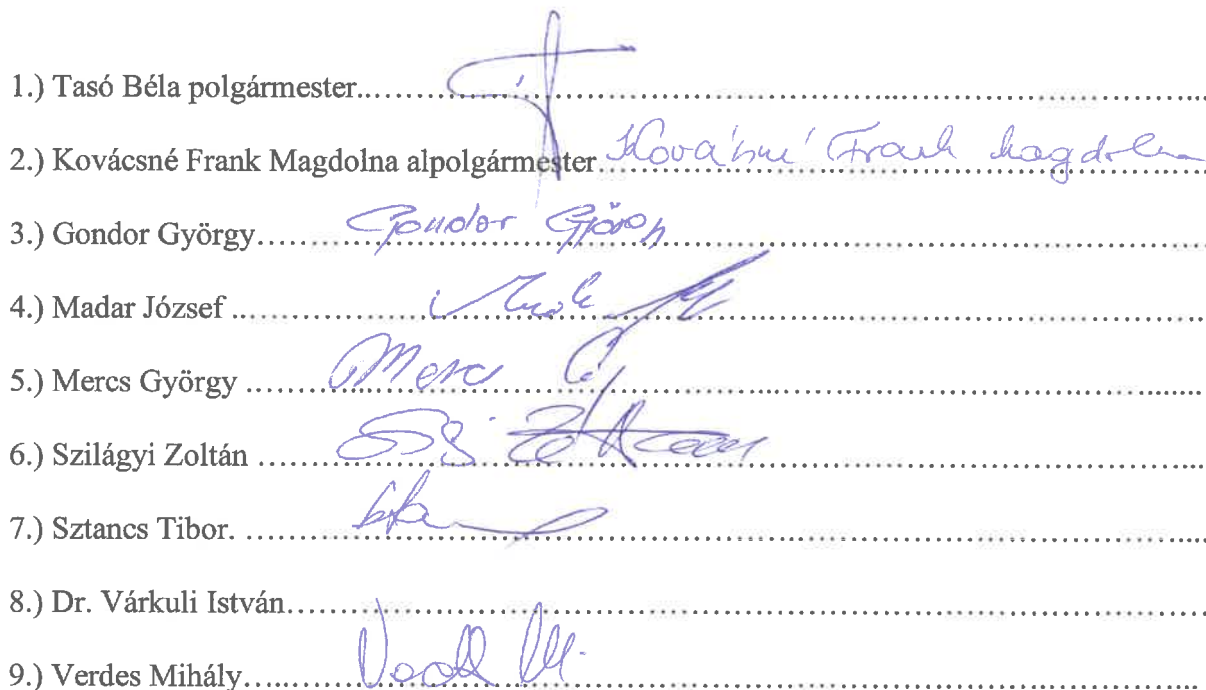 1.) Tasó Béla polgármester..............................
2.) Kovácsné Frank Magdolna alpolgármester Kovácsné Frank Magdolna
3.) Gondor György.......... Gondor György
4.) Madar József ..............................
5.) Mercs György .......... Mercs Gy
6.) Szilágyi Zoltán .......... Zoltán
7.) Sztancs Tibor. ..............................
8.) Dr. Várkuli István..............................
9.) Verdes Mihály.......... M.